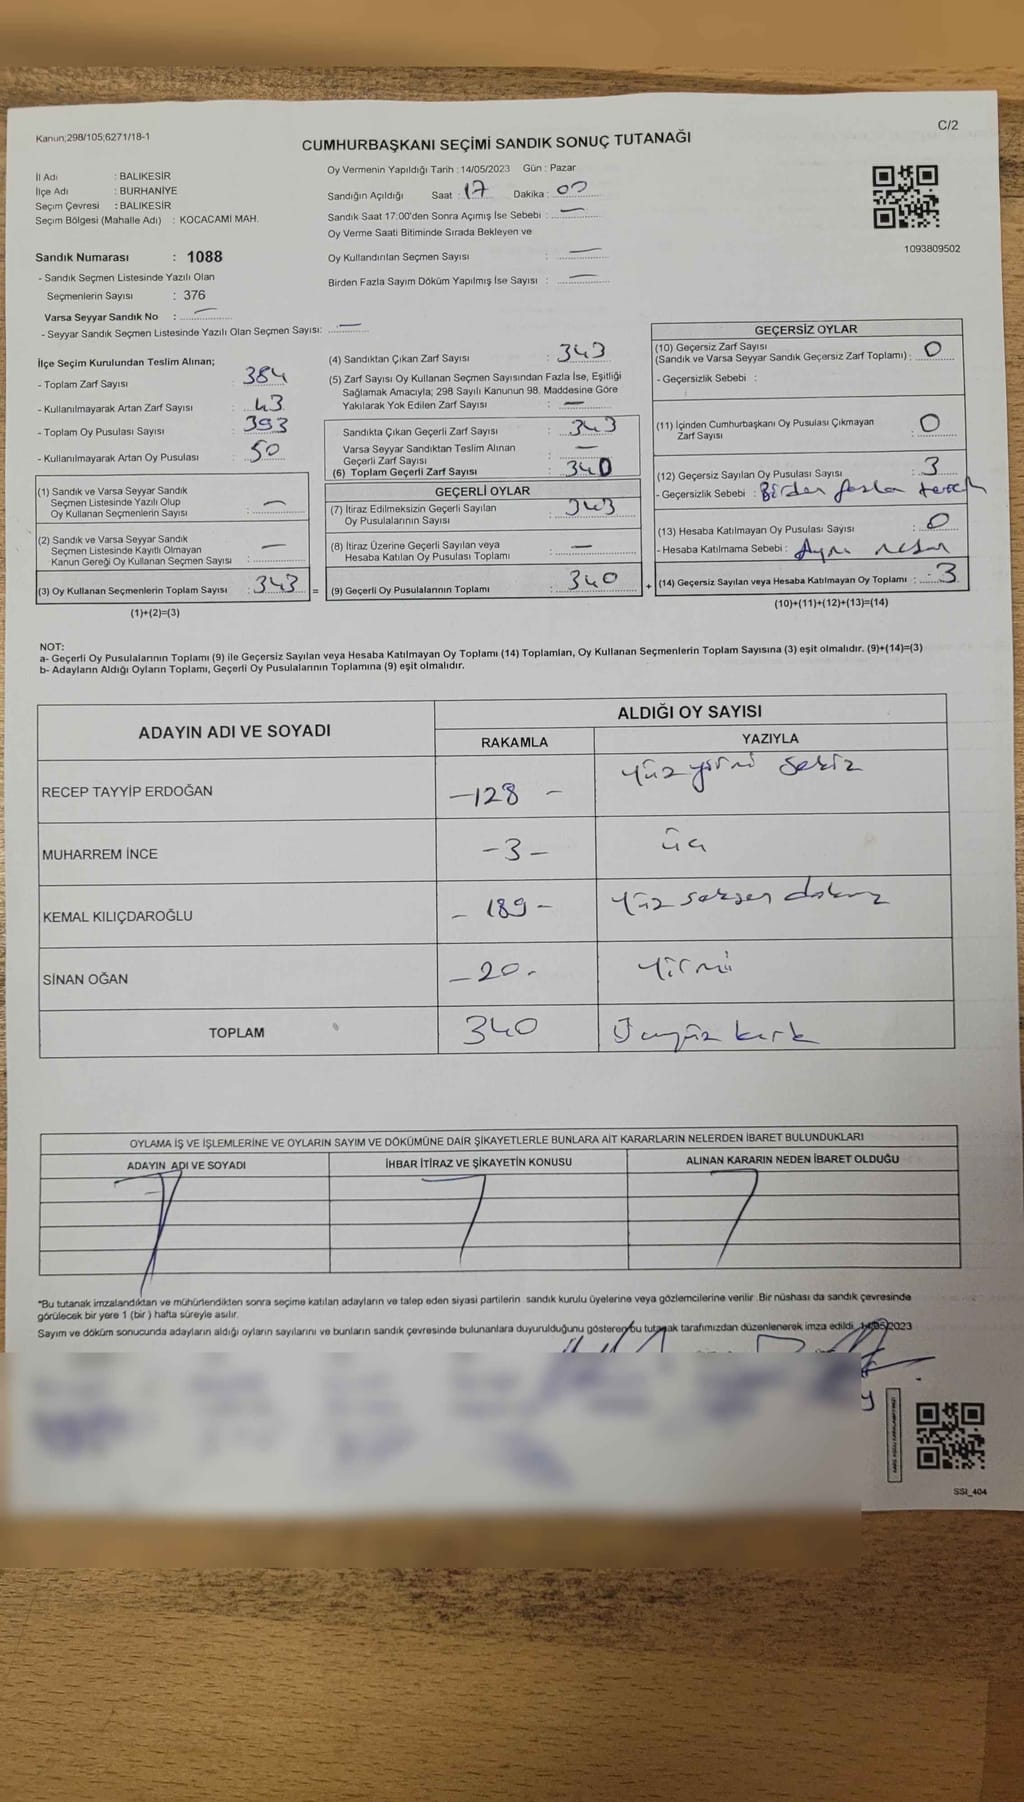 Kanun;298/105;6271/18-1
C/2
CUMHURBAŞKANI SEÇİMİ SANDIK SONUÇ TUTANAĞI
İl Adı : BALIKESİR
İlçe Adı : BURHANİYE
Seçim Çevresi : BALIKESİR
Seçim Bölgesi (Mahalle Adı) : KOCACAMİ MAH.
Sandık Numarası : 1088
- Sandık Seçmen Listesinde Yazılı Olan
Seçmenlerin Sayısı : 376
Varsa Seyyar Sandık No : —
- Seyyar Sandık Seçmen Listesinde Yazılı Olan Seçmen Sayısı: —
Oy Vermenin Yapıldığı Tarih : 14/05/2023 Gün : Pazar
Sandığın Açıldığı Saat : 17 Dakika : 00
Sandık Saat 17:00'den Sonra Açımış İse Sebebi : —
Oy Verme Saati Bitiminde Sırada Bekleyen ve
Oy Kullandırılan Seçmen Sayısı : —
Birden Fazla Sayım Döküm Yapılmış İse Sayısı : —
1093809502
İlçe Seçim Kurulundan Teslim Alınan;
- Toplam Zarf Sayısı : 384
- Kullanılmayarak Artan Zarf Sayısı : 43
- Toplam Oy Pusulası Sayısı : 393
- Kullanılmayarak Artan Oy Pusulası : 50
(1) Sandık ve Varsa Seyyar Sandık
Seçmen Listesinde Yazılı Olup
Oy Kullanan Seçmenlerin Sayısı : —
(2) Sandık ve Varsa Seyyar Sandık
Seçmen Listesinde Kayıtlı Olmayan
Kanun Gereği Oy Kullanan Seçmen Sayısı : —
(3) Oy Kullanan Seçmenlerin Toplam Sayısı : 343 =
(1)+(2)=(3)
(4) Sandıktan Çıkan Zarf Sayısı : 343
(5) Zarf Sayısı Oy Kullanan Seçmen Sayısından Fazla İse, Eşitliği
Sağlamak Amacıyla; 298 Sayılı Kanunun 98. Maddesine Göre
Yakılarak Yok Edilen Zarf Sayısı : —
Sandıkta Çıkan Geçerli Zarf Sayısı : 343
Varsa Seyyar Sandıktan Teslim Alınan
Geçerli Zarf Sayısı : —
(6) Toplam Geçerli Zarf Sayısı : 340
GEÇERLİ OYLAR
(7) İtiraz Edilmeksizin Geçerli Sayılan
Oy Pusulalarının Sayısı : 343
(8) İtiraz Üzerine Geçerli Sayılan veya
Hesaba Katılan Oy Pusulası Toplamı : —
(9) Geçerli Oy Pusulalarının Toplamı : 340 +
GEÇERSİZ OYLAR
(10) Geçersiz Zarf Sayısı
(Sandık ve Varsa Seyyar Sandık Geçersiz Zarf Toplamı) : 0
- Geçersizlik Sebebi :
(11) İçinden Cumhurbaşkanı Oy Pusulası Çıkmayan
Zarf Sayısı : 0
(12) Geçersiz Sayılan Oy Pusulası Sayısı : 3
- Geçersizlik Sebebi : Birden fazla tercih
(13) Hesaba Katılmayan Oy Pusulası Sayısı : 0
- Hesaba Katılmama Sebebi : Aynı
(14) Geçersiz Sayılan veya Hesaba Katılmayan Oy Toplamı : 3
(10)+(11)+(12)+(13)=(14)
NOT:
a- Geçerli Oy Pusulalarının Toplamı (9) ile Geçersiz Sayılan veya Hesaba Katılmayan Oy Toplamı (14) Toplamları, Oy Kullanan Seçmenlerin Toplam Sayısına (3) eşit olmalıdır. (9)+(14)=(3)
b- Adayların Aldığı Oyların Toplamı, Geçerli Oy Pusulalarının Toplamına (9) eşit olmalıdır.
ADAYIN ADI VE SOYADI ALDIĞI OY SAYISI
RAKAMLA YAZIYLA
RECEP TAYYİP ERDOĞAN -128- Yüz yirmi sekiz
MUHARREM İNCE -3- üç
KEMAL KILIÇDAROĞLU -189- Yüz seksen dokuz
SİNAN OĞAN -20- Yirmi
TOPLAM 340 Üçyüz kırk
OYLAMA İŞ VE İŞLEMLERİNE VE OYLARIN SAYIM VE DÖKÜMÜNE DAİR ŞİKAYETLERLE BUNLARA AİT KARARLARIN NELERDEN İBARET BULUNDUKLARI
ADAYIN ADI VE SOYADI İHBAR İTİRAZ VE ŞİKAYETİN KONUSU ALINAN KARARIN NEDEN İBARET OLDUĞU
*Bu tutanak imzalandıktan ve mühürlendikten sonra seçime katılan adayların ve talep eden siyasi partilerin sandık kurulu üyelerine veya gözlemcilerine verilir. Bir nüshası da sandık çevresinde
görülecek bir yere 1 (bir) hafta süreyle asılır.
Sayım ve döküm sonucunda adayların aldığı oyların sayılarını ve bunların sandık çevresinde bulunanlara duyurulduğunu gösteren bu tutanak tarafımızdan düzenlenerek imza edildi. 14/05/2023
SSI_404